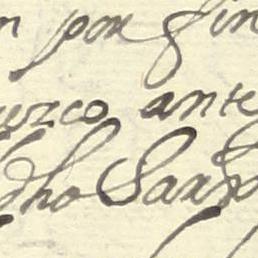 n por fin
urco ante
dho San